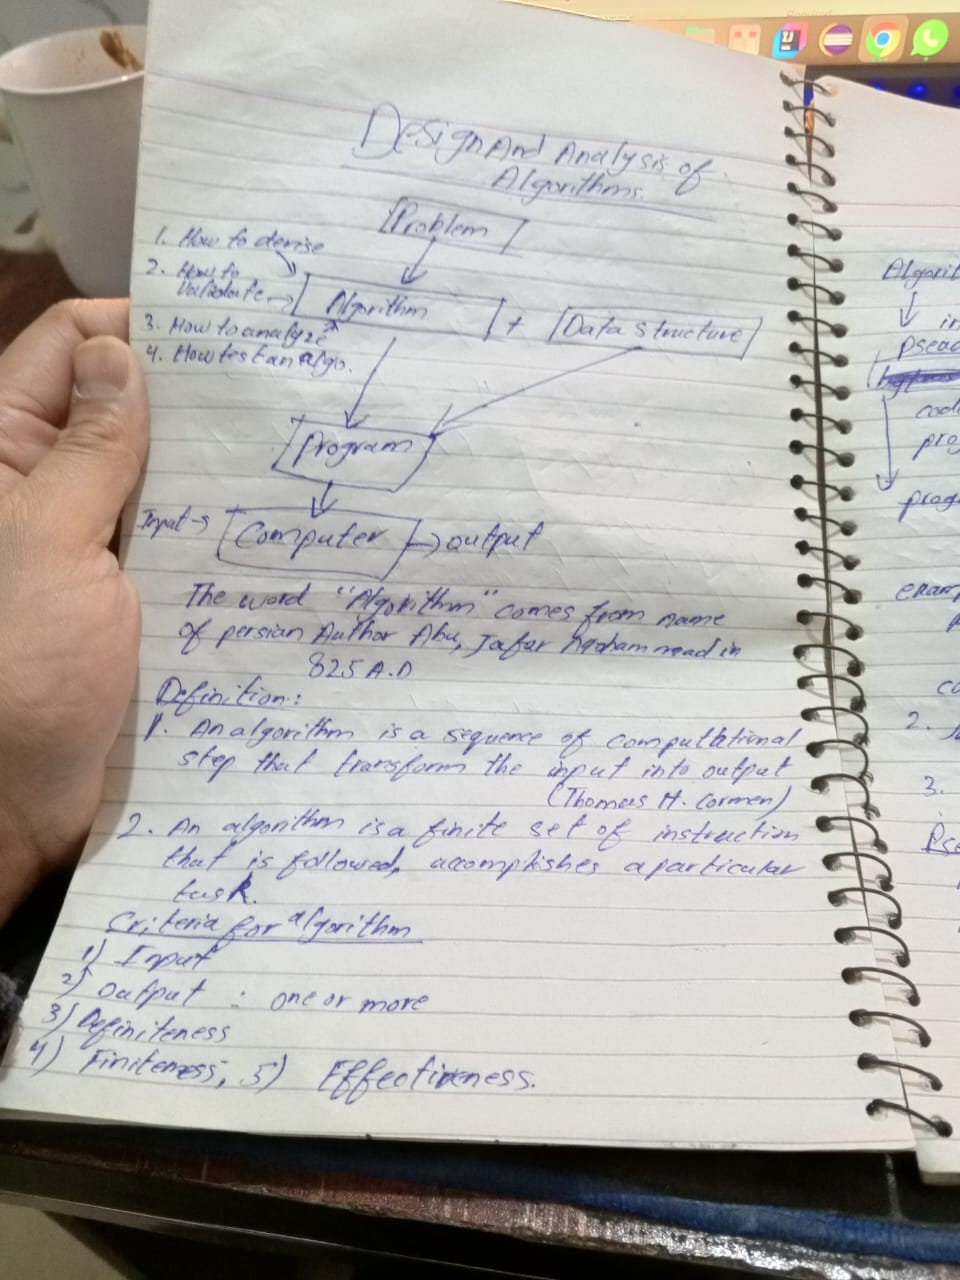 Required
Design And Analysis of
Algorithms.
Problem
1. How to devise
2. How to
Validate
Algorithm + Data Structure
3. How to analyze
4. How test an algo.
Program
Input → Computer → output
The word "Algorithm" comes from name
of persian Author Abu, Jafar Mohammad in
825 A.D
Definition:
1. An algorithm is a sequence of computational
step that transform the input into output
(Thomas H. Cormen)
2. An algorithm is a finite set of instruction
that is followed, accomplishes a particular
task.
Criteria for algorithm
1) Input
2) output : one or more
3) Definiteness
4) Finiteness, 5) Effectiveness.
Algorit
in
Psead
cod
prog
prog
exam
2.
3.
Pse